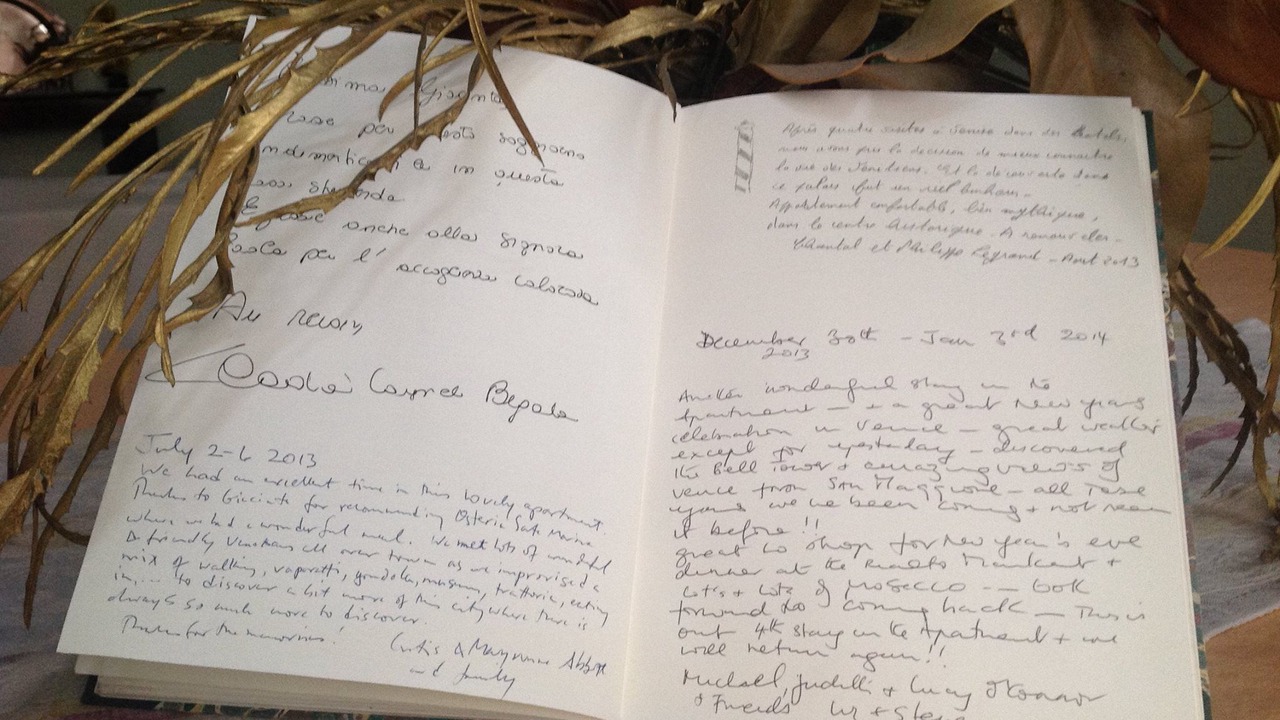 per
in questa
anche alla signora
Paola per l'
Au revoir
July 2-6 2013
We had an excellent time in this lovely apartment.
Thanks to Giacinta for recommending Osteria Santa Marina
where we had a wonderful meal. We met lots of wonderful
& friendly Venetians all over town as we improvised a
mix of walking, vaporetti, gondola, museum, trattoria, eating
in,... to discover a bit more of this city where there is
always so much more to discover.
Thanks for the memories!
Curtis & Maryanne Abbott
and family
Après quatre visites à Venise dans des hotels,
nous avons pris la décision de mieux connaitre
la vie des Vénitiens. Et la découverte dans
ce palais fut un réel bonheur.
Appartement confortable, lieu mythique,
dans le centre historique. A renouveler.
Chantal et Philippe Legrand - Aout 2013
December 30th - Jan 3rd 2014
2013
Another wonderful stay in the
Apartment - + a great New Years
celebration in Venice - great weather
except for yesterday - discovered
the Bell Tower + amazing views of
Venice from San Maggiore - all these
years we've been coming + not seen
it before!!
great to shop for New Year's eve
dinner at the Rialto Market +
Lots + Lots of prosecco -- look
forward to coming back - This is
our 4th stay in the Apartment + we
will return again!!
Michael, Judith + Lucy O'Connor
+ Friends